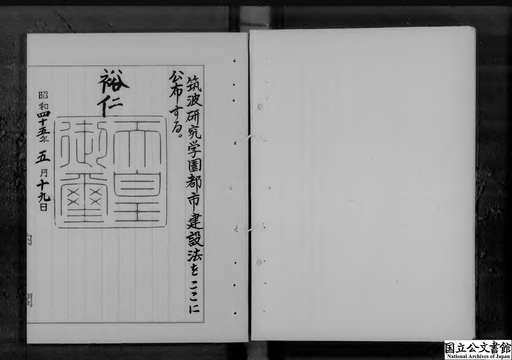 筑波研究学園都市建設法をここに
公布する。
裕仁
天皇
御璽
昭和四十五年五月十九日
国立公文書館
National Archives of Japan